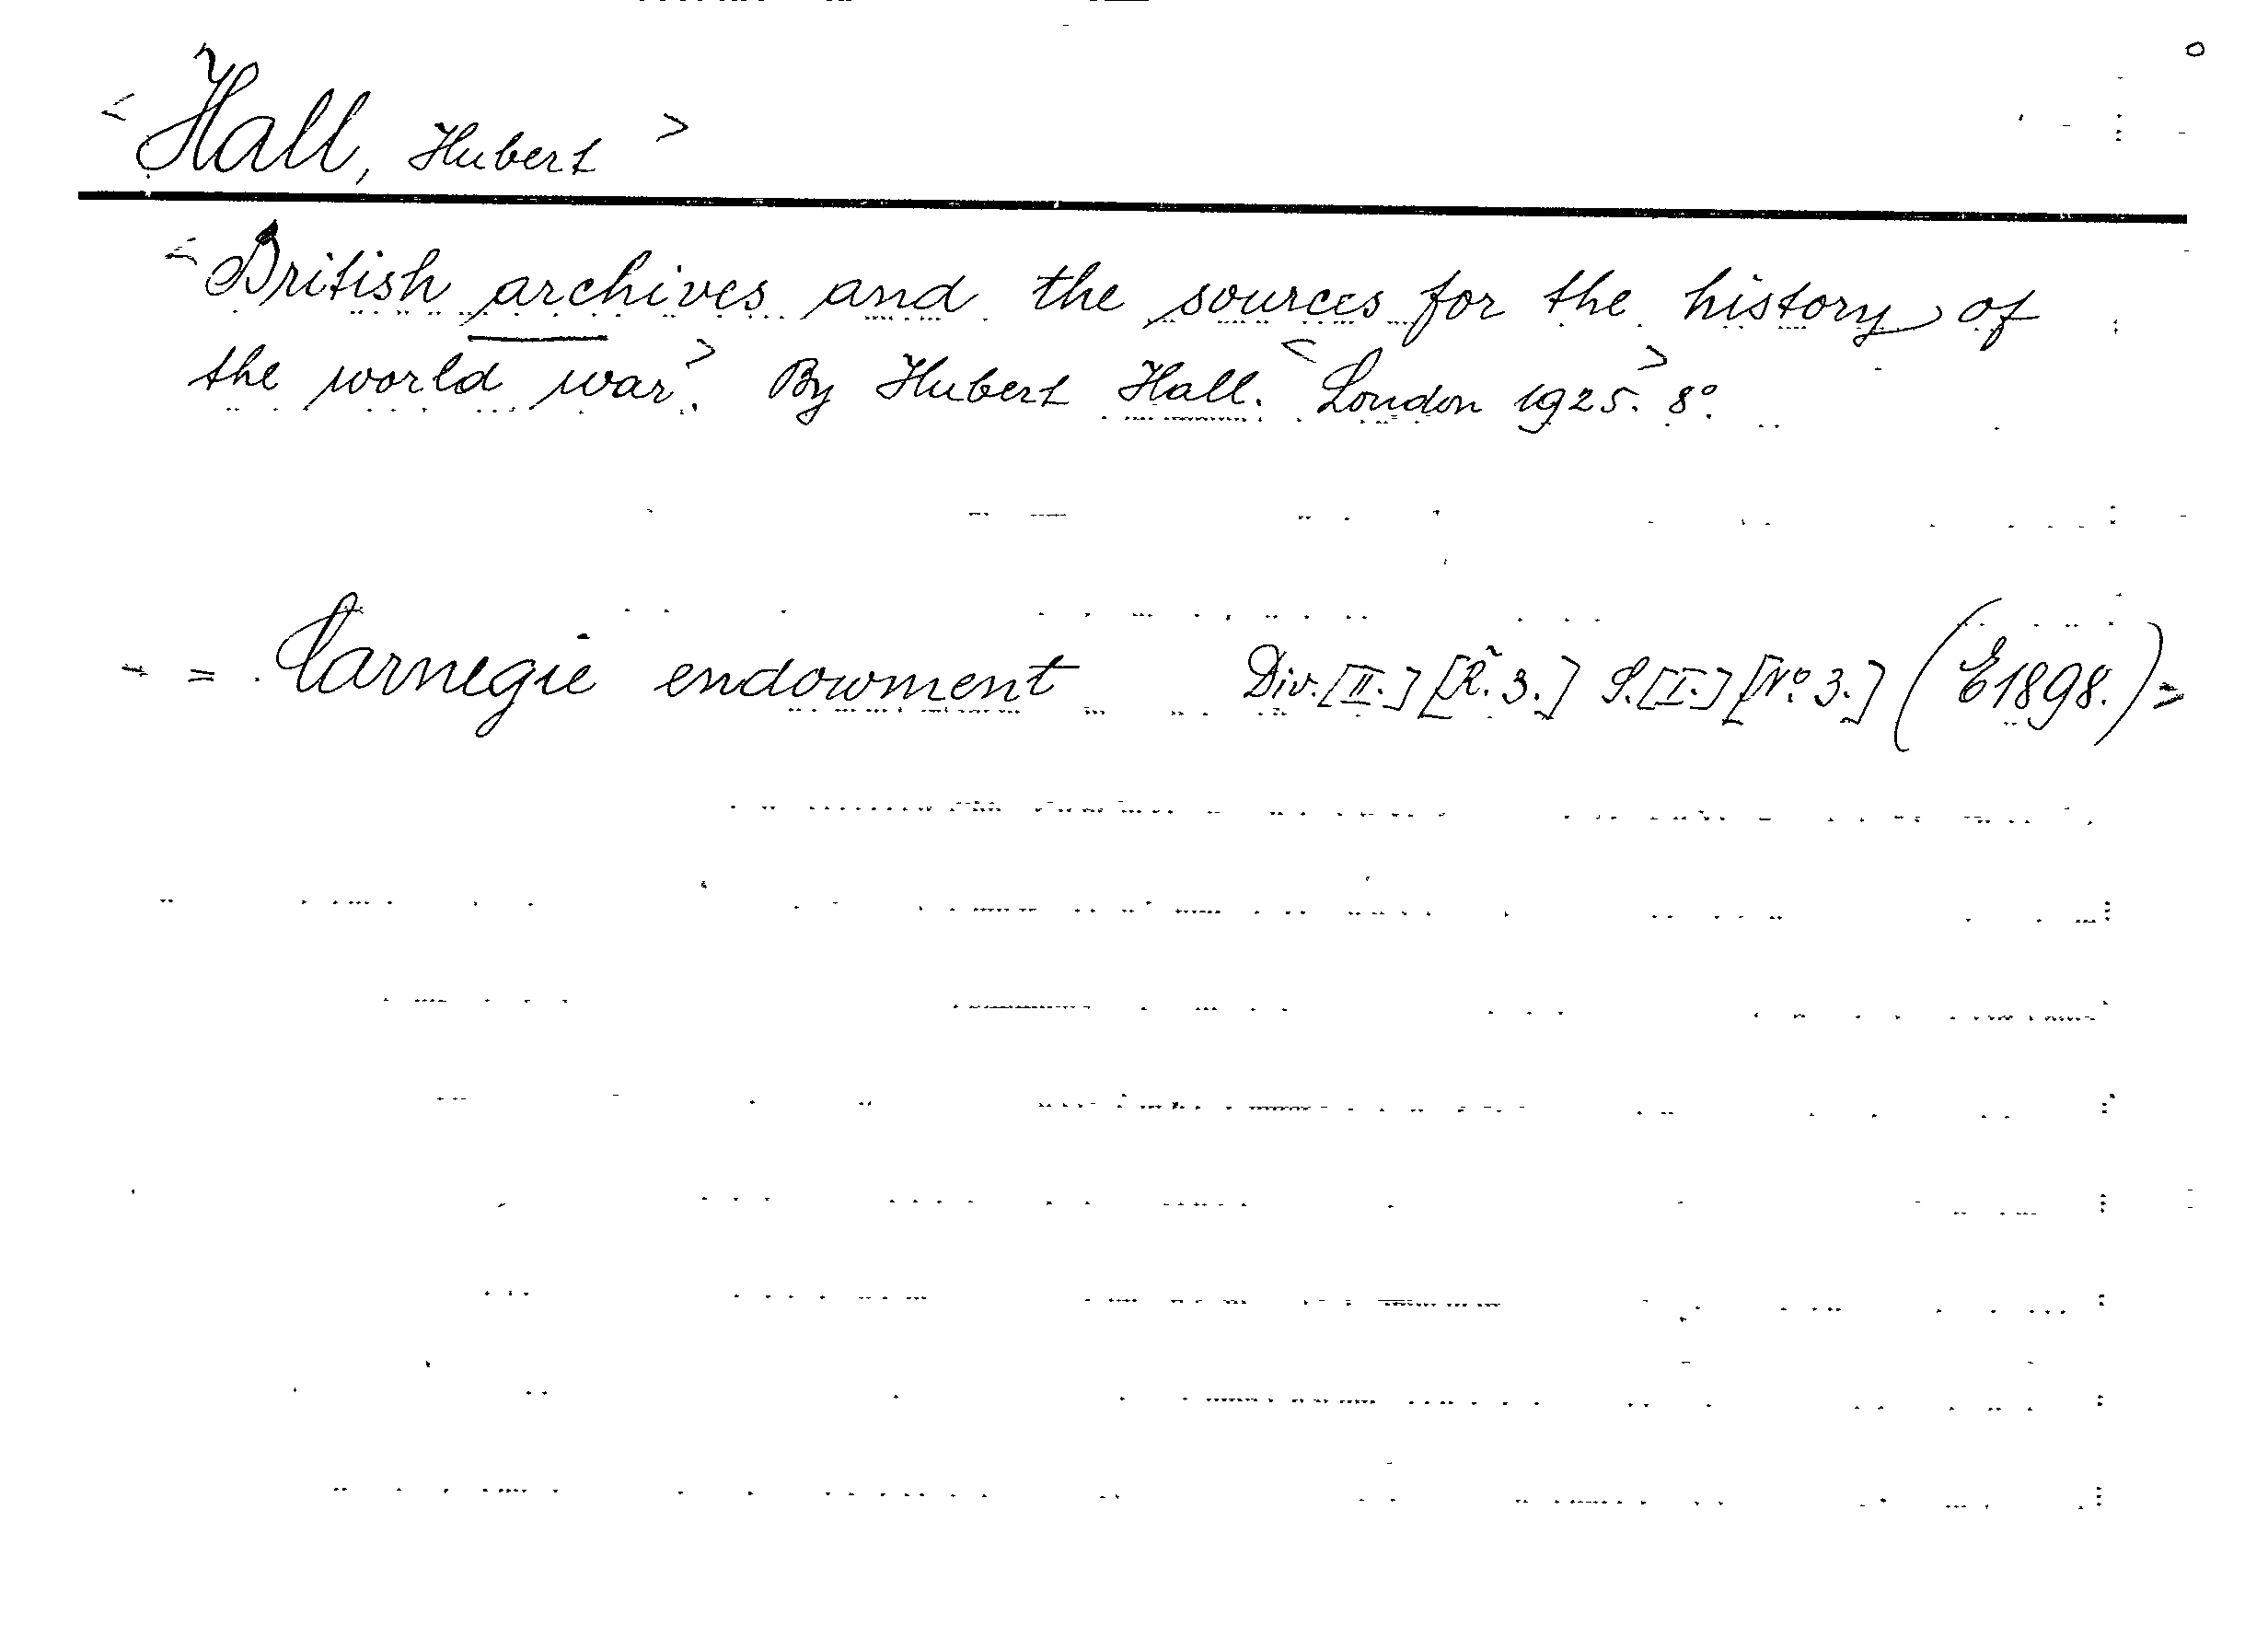 < Hall, Hubert >
< British archives and the sources for the history of
the world war >. By Hubert Hall. < London 1925. > 8°.
= Carnegie endowment Div. [II.] [R. 3.] S. [I.] [N° 3.] (E1898.) >